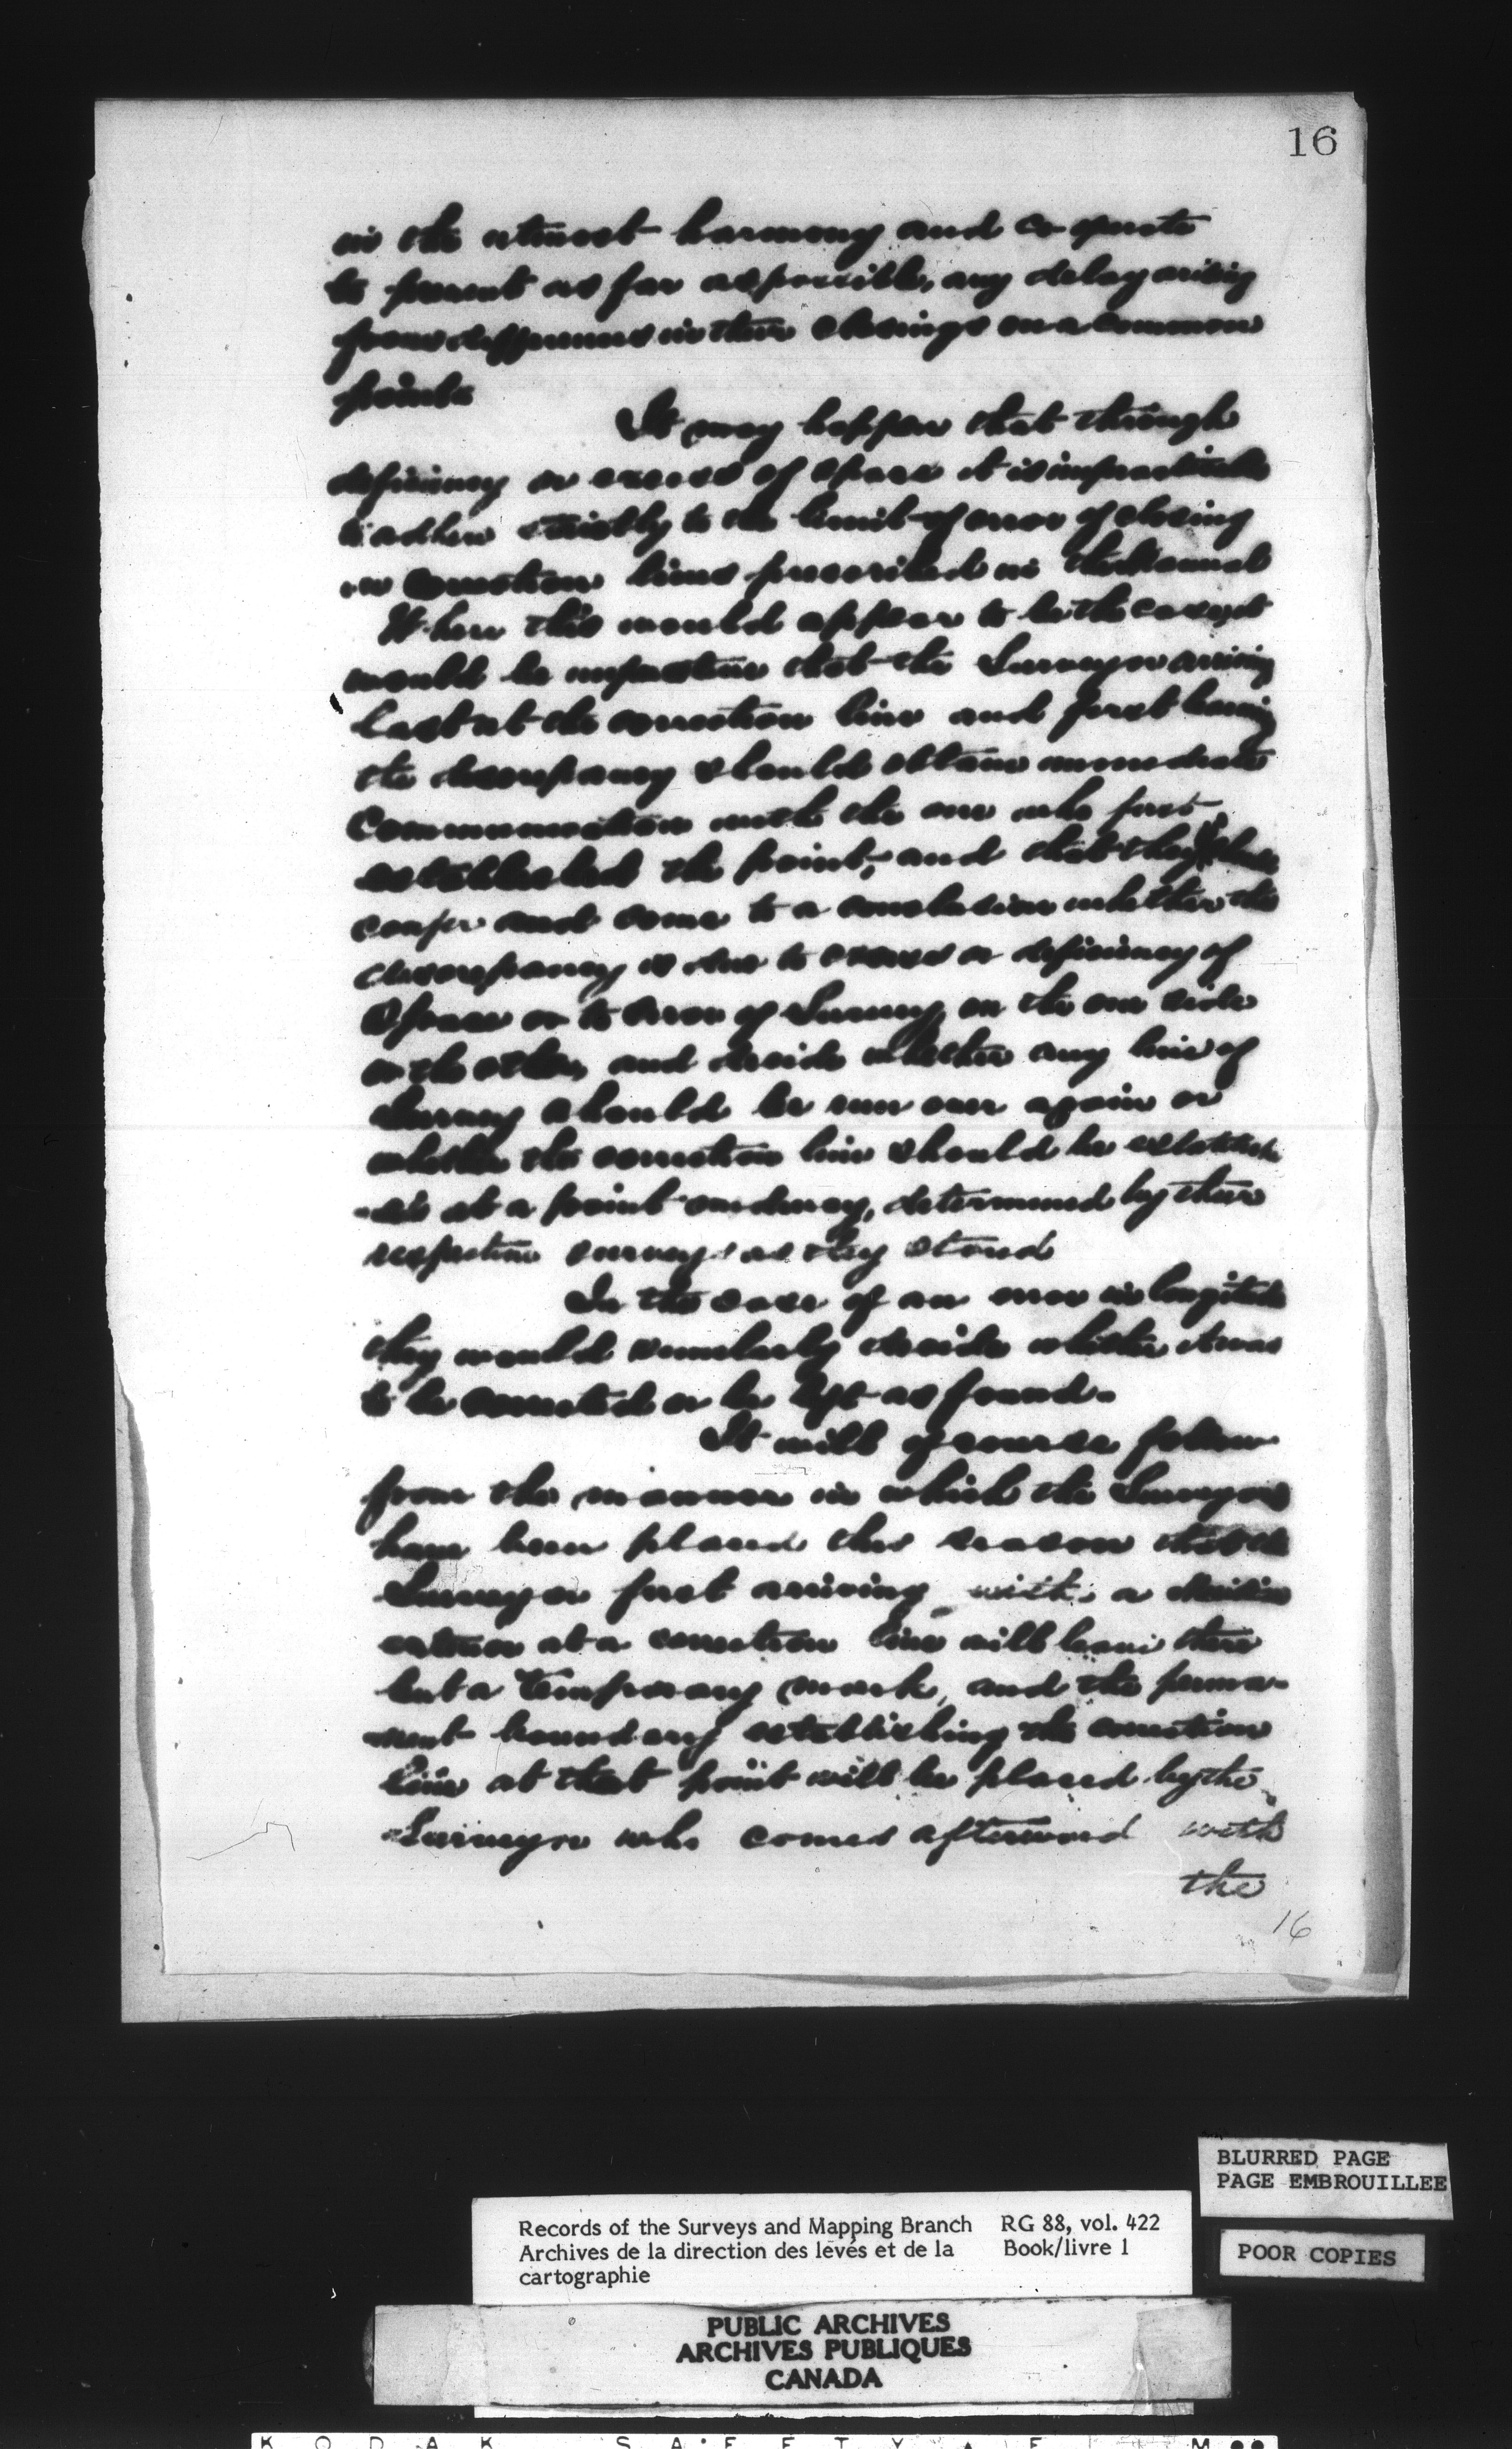 16
in the utmost harmony and co-operate
to prevent as far as possible, any delay arising
from differences in their closings on a common
point.
It may happen that through
deficiency or excess of space it is impracticable
to adhere strictly to the limit of error of closing
on correction lines prescribed in the Manual
Where this would appear to be the case, it
would be imperative that the Surveyor arriving
last at the correction line and first
the discrepancy should obtain immediate
communication with the one who first
established the point, and that they should
confer and come to a conclusion whether the
discrepancy is due to excess or deficiency of
space or to error of Survey on the one side
or the other, and decide whether any line of
Survey should be run over again or
whether the correction line should be establish
-ed at a point midway, determined by their
respective surveys as they stand
In the case of an error in longitude
they would similarly decide whether it was
to be corrected or be left as found.
It will of course follow
from the manner in which the Surveyors
have been placed this season that the
Surveyor first arriving with a meridian
exterior at a correction line will leave there
but a temporary mark, and the perma-
nent boundary establishing the correction
line at that point will be placed by the
Surveyor who comes afterward with
the
16
BLURRED PAGE
PAGE EMBROUILLEE
Records of the Surveys and Mapping Branch RG 88, vol. 422
Archives de la direction des levés et de la Book/livre 1
cartographie
POOR COPIES
PUBLIC ARCHIVES
ARCHIVES PUBLIQUES
CANADA
KODAK SAFETY